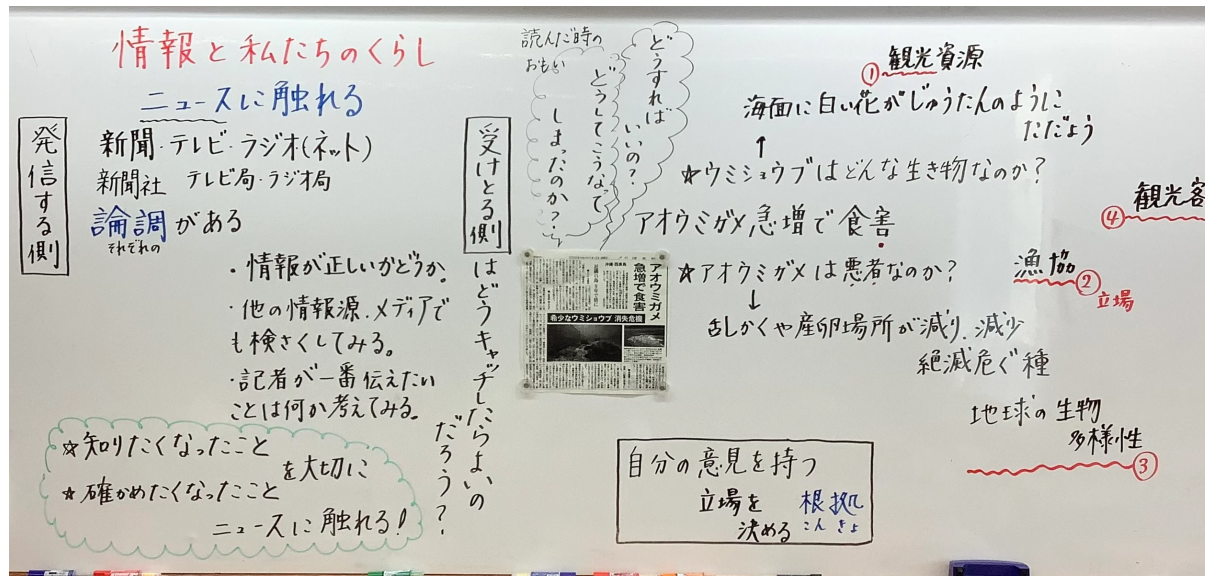 情報と私たちのくらし
ニュースに触れる
発信する側
新聞・テレビ・ラジオ(ネット)
新聞社 テレビ局・ラジオ局
論調がある
それぞれの
・情報が正しいかどうか。
・他の情報源、メディアで
も検さくしてみる。
・記者が一番伝えたい
ことは何か考えてみる。
☆知りたくなったこと
を大切に
☆確かめたくなったこと
ニュースに触れる!
受けとる側はどうキャッチしたらよいの
だろう?
読んだ時の
おもい
どうすれば
いいの?
どうしてこうなって
しまったのか?
アオウミガメ
急増で食害
希少なウミショウブ 消失危機
①観光資源
海面に白い花がじゅうたんのように
ただよう
↑
☆ウミショウブはどんな生き物なのか?
アオウミガメ急増で食害
☆アオウミガメは悪者なのか?
↓
古しかくや産卵場所が減り、減少
絶滅危ぐ種
地球の生物
多様性
③
④観光客
漁協
②
立場
自分の意見を持つ
立場を 根拠
決める こんきょ